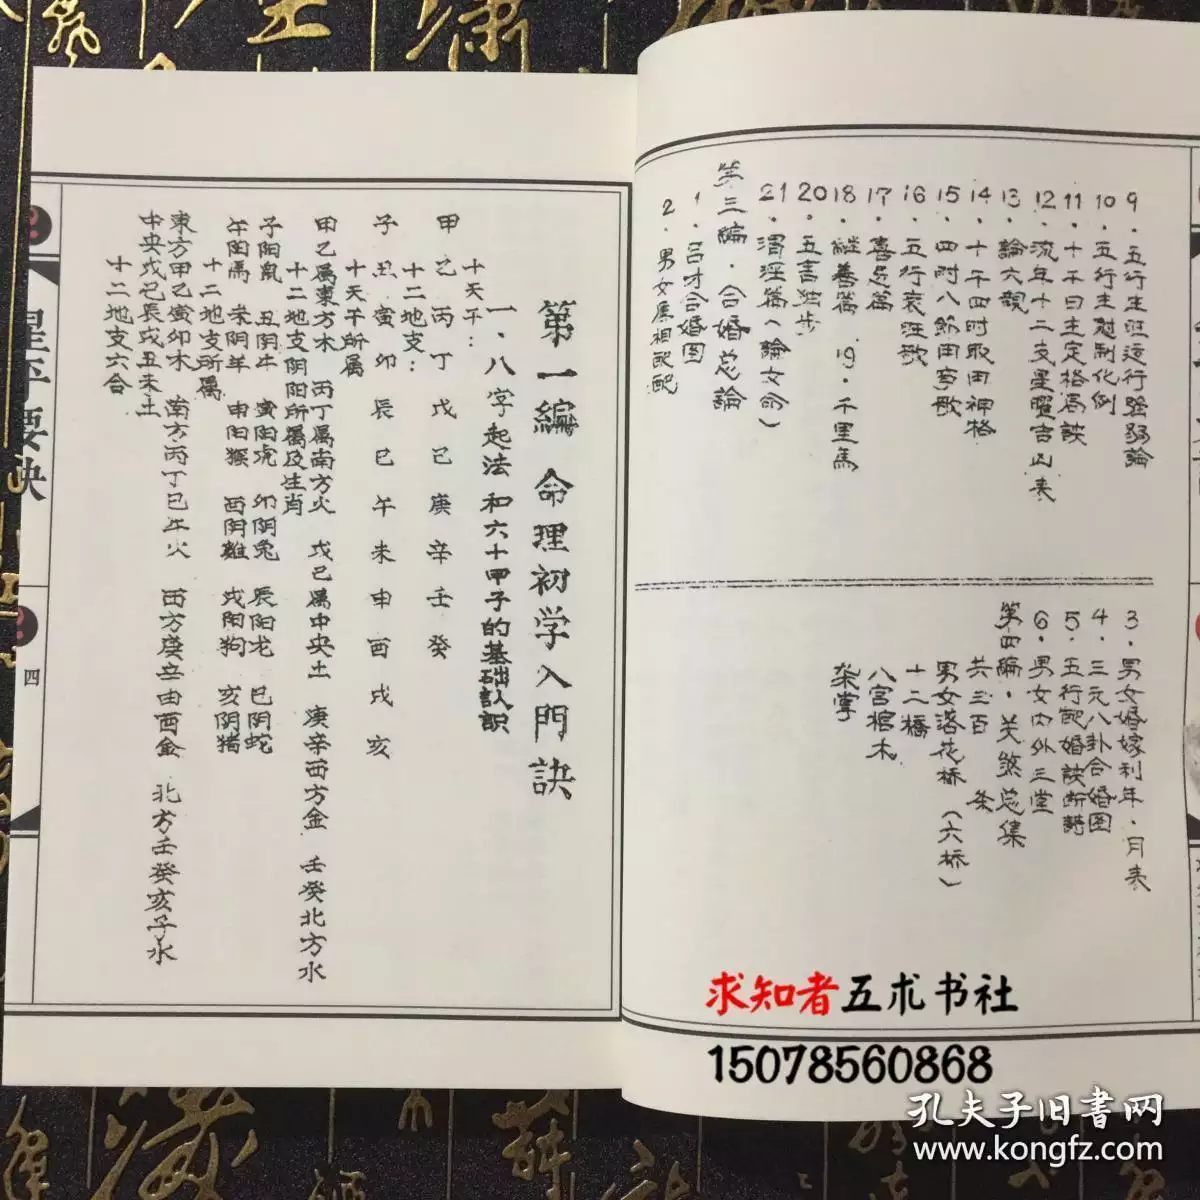 9．五行生旺运行强弱論
10．五行生尅制化例
11．十干日主定格局訣
12．流年十二支星曜吉凶表
13．論六親
14．十干四时取用神格
15．四时八節用事歌
16．五行衰旺歌
17．喜忌篇
18．繼善篇 19．千里馬
20．五言独步
21．渭泾篇（論女命）
第三編．合婚总論
1．吕才合婚图
2．男女屬相配配
3．男女婚嫁利年．月表
4．三元八卦合婚图
5．五行配婚訣断詩
6．男女内外三堂
第四編．关煞总集
共三百 条
男女落花桥（六桥）
十二橋
八宫棺木
第一編 命理初学入門訣
一．八字起法和六十甲子的基础认識
十天干：
甲乙丙丁戊己庚辛壬癸
十二地支：
子丑寅卯辰巳午未申酉戌亥
十天干所属
甲乙属東方木 丙丁属南方火 戊己属中央土 庚辛西方金 壬癸北方水
十二地支阴阳所属及生肖
子阳鼠 丑阴牛 寅阳虎 卯阴兔 辰阳龙 巳阴蛇
午阳馬 未阴羊 申阳猴 酉阴雞 戌阳狗 亥阴猪
十二地支所属
東方甲乙寅卯木 南方丙丁巳午火 西方庚辛申酉金 北方壬癸亥子水
中央戊己辰戌丑未土
十二地支六合
星平要诀
四
求知者五术书社
15078560868
孔夫子旧書网
www.kongfz.com